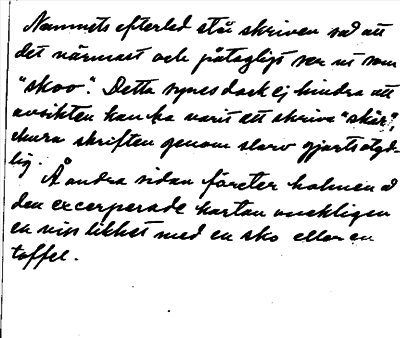 Namnets efterled står skriven så att
det närmast och påtagligt ser ut som
"skoo". Detta synes dock ej hindra att
avsikten kan ha varit att skriva "skär",
ehuru skriften genom slarv gjorts otyd-
lig.
Å andra sidan företer holmen å
den excerperade kartan verkligen
en viss likhet med en sko eller en
toffel.